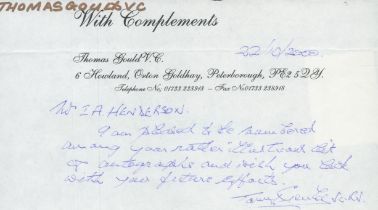 THOMAS GOULD VC
With Complements
Thomas Gould V.C.
6 Howland, Orton Goldhay, Peterborough, PE2 5QY.
Telephone No. 01733 238918 – Fax No 01733 238918
22/10/2000
Mr I A HENDERSON.
I am pleased to be numbered
among your rather illustrious list
of autographs and wish you luck
with your future efforts.